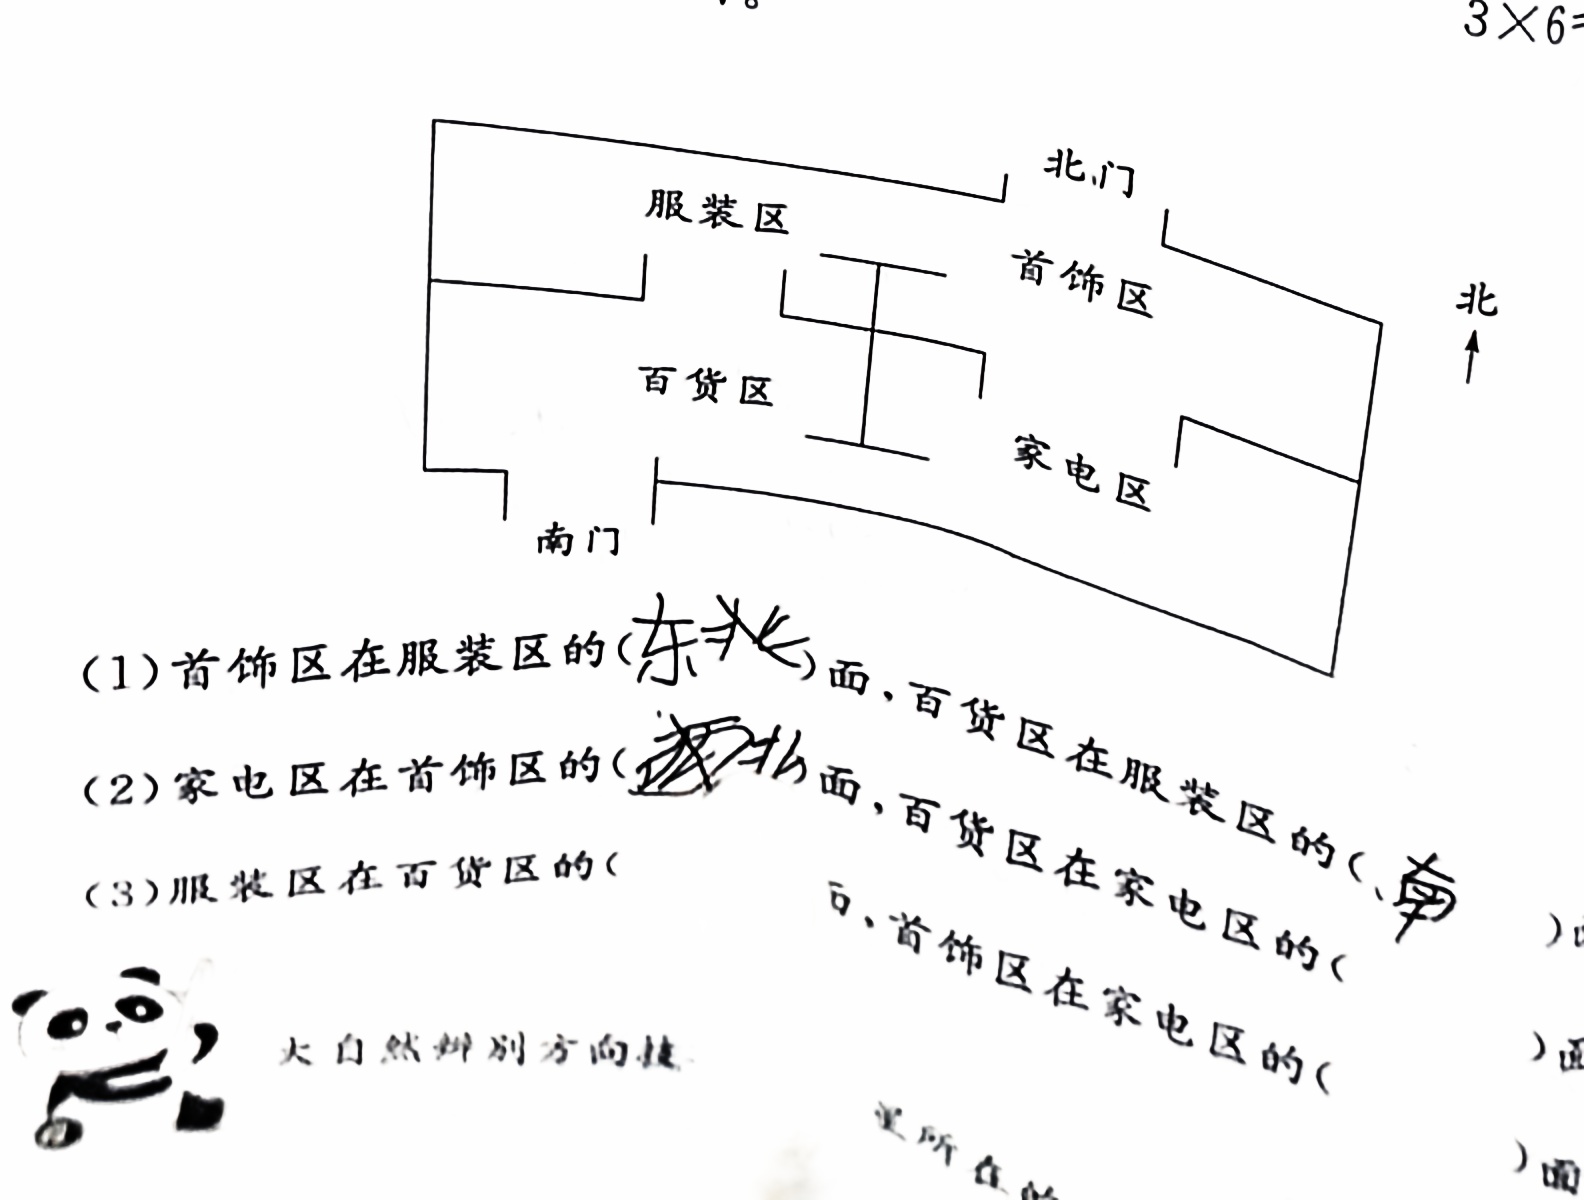 3×6=
北门
服装区
首饰区
北
百货区
家电区
南门
(1)首饰区在服装区的(东北)面、百货区在服装区的(南)
(2)家电区在首饰区的( )面、百货区在家电区的( )面
(3)服装区在百货区的( 、首饰区在家电区的( )面
大自然辨别方向
所在的